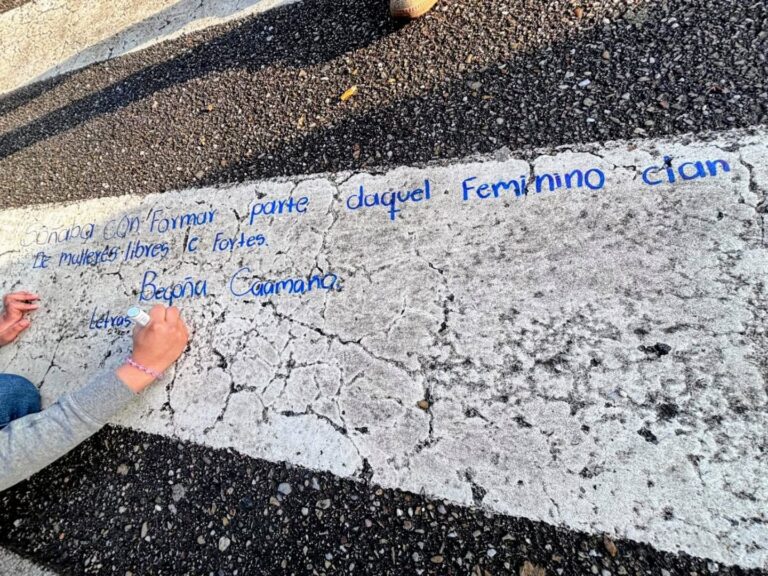 Soñaba con Formar parte daquel Feminino clan
De mulleres libres e Fortes.
Begoña Caamaño.
letras